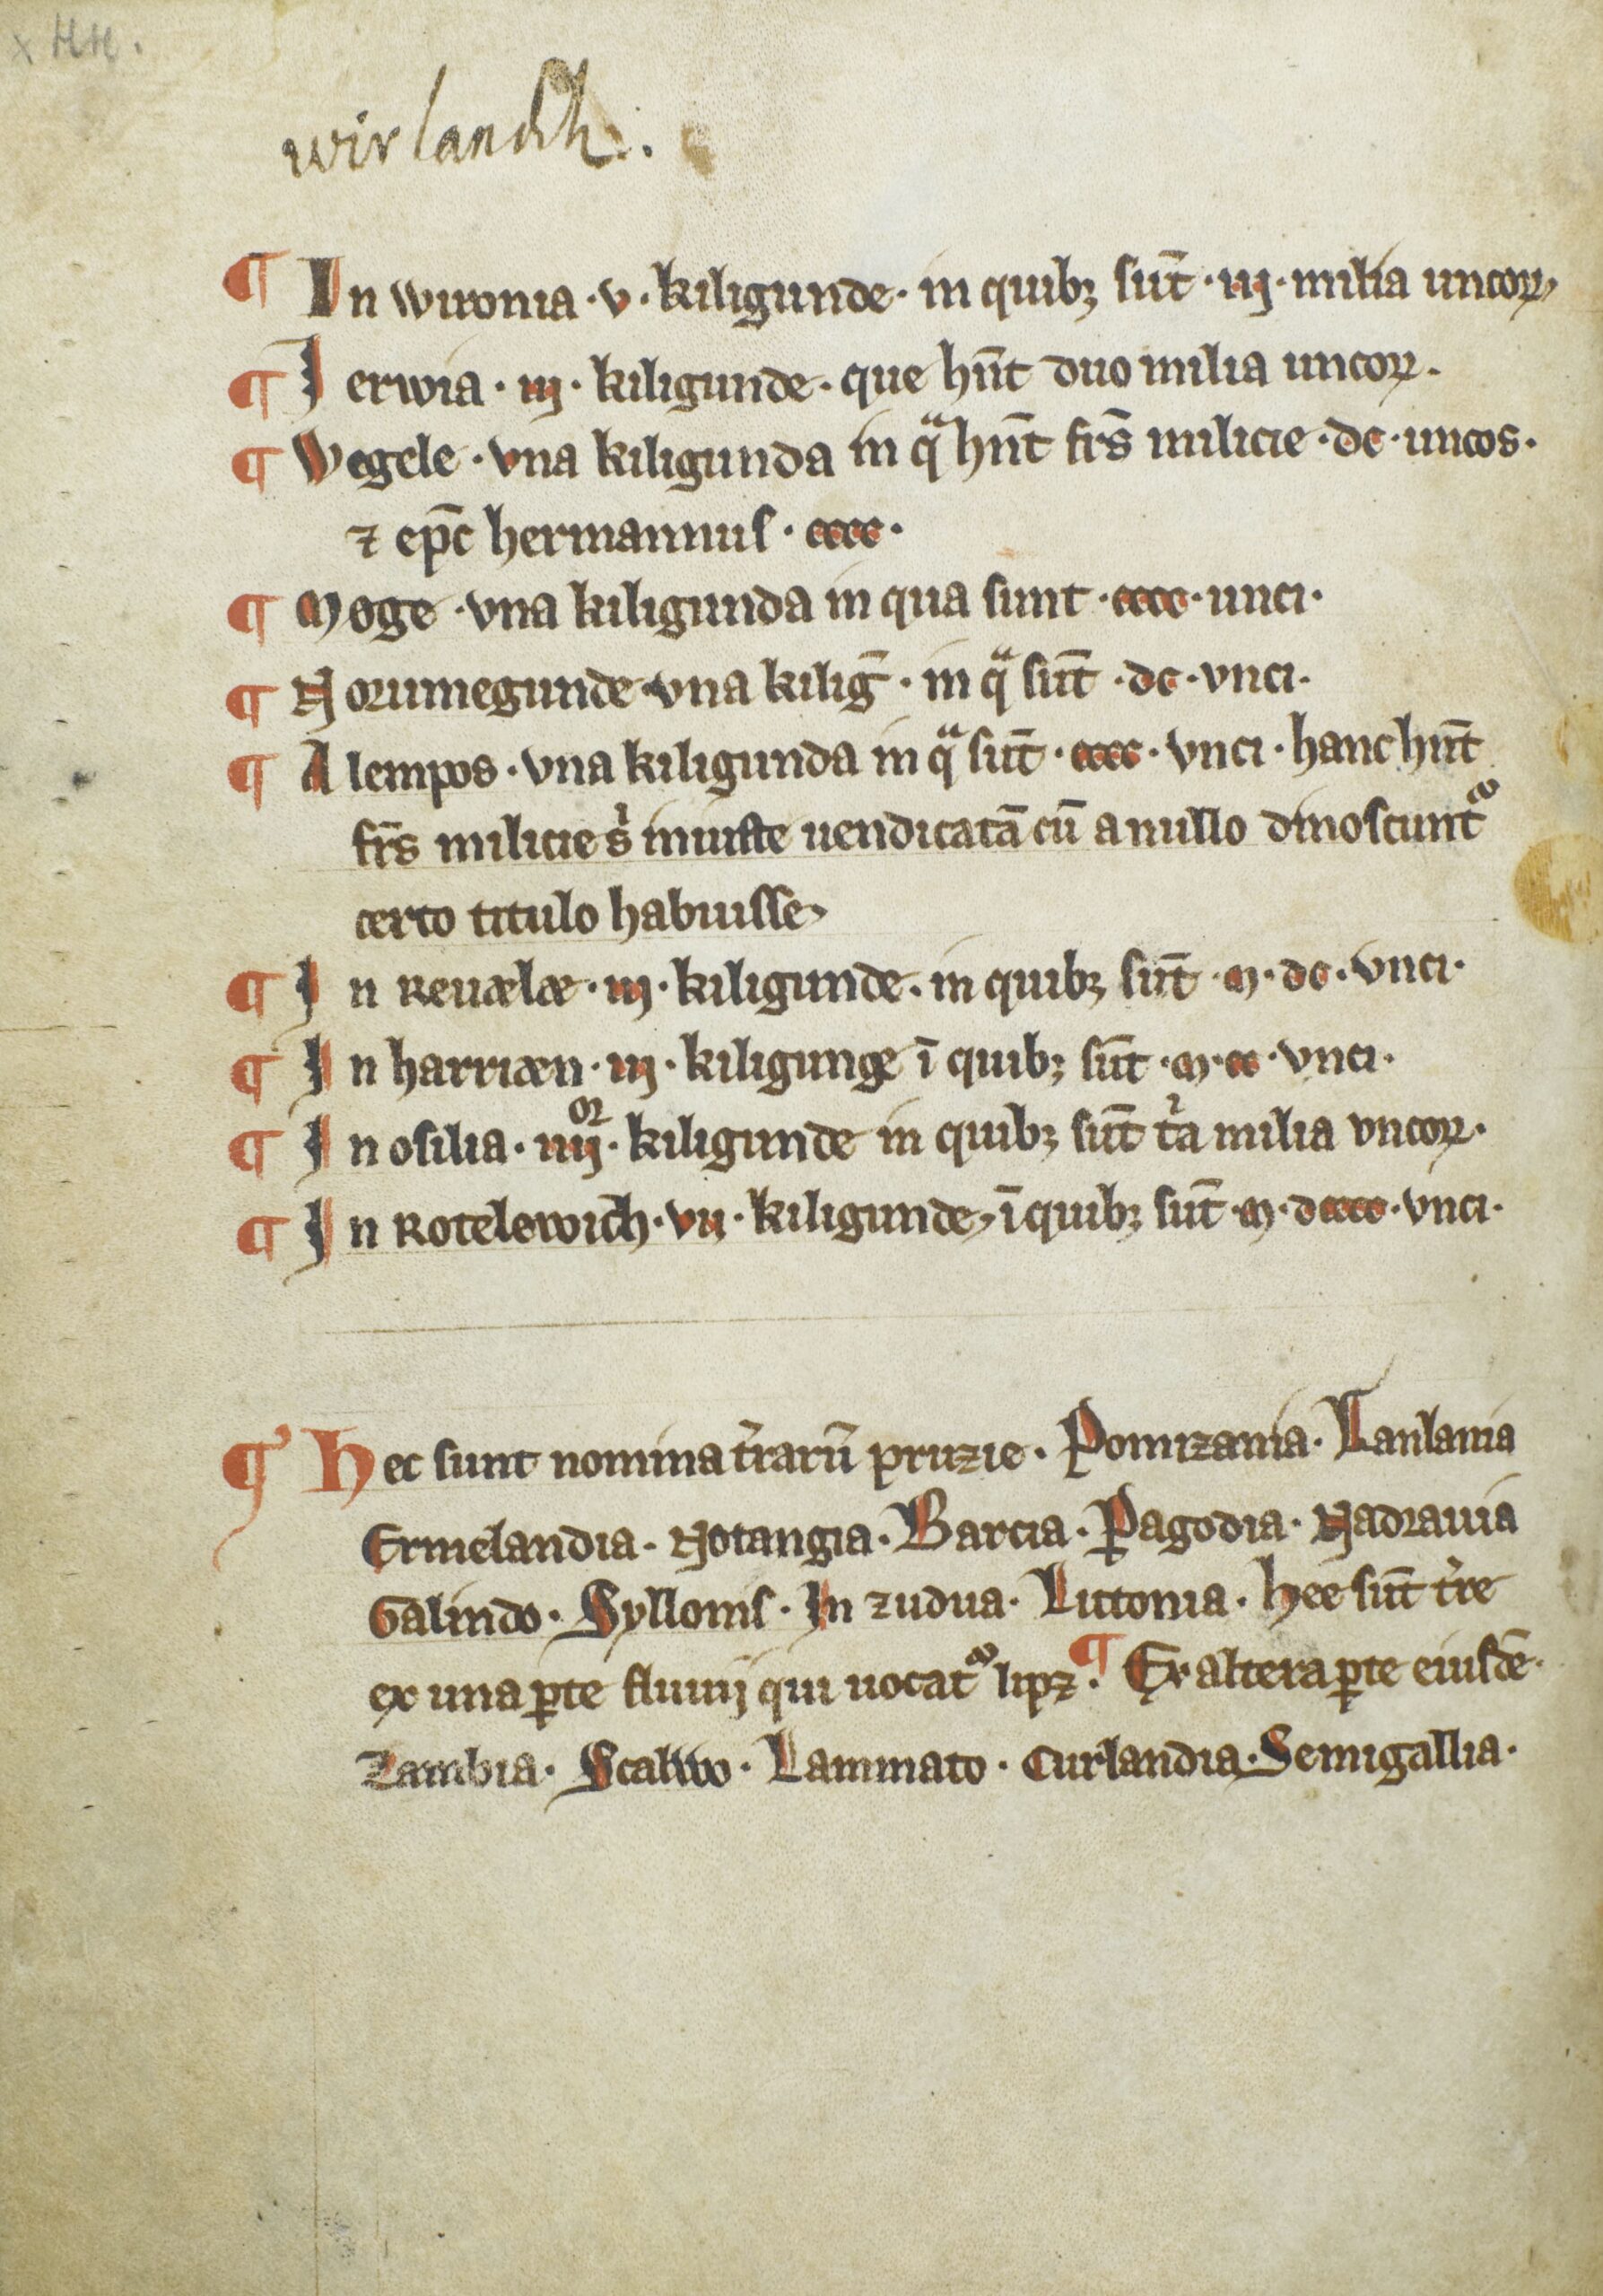 wirlandh:.
¶ In wironia · v · kiligunde · in quibꝫ sūt · iij · milia uncoꝝ,
¶ Ierwia · iij · kiligunde · que hn̄t duo milia uncoꝝ ·
¶ Wegele · vna kiligunda in qͣ hn̄t fr̄s milicie · dc · uncos ·
⁊ ep̄c hermannuſ · cccc ·
¶ Moge · vna kiligunda in qua sunt · cccc · unci ·
¶ Norumegunde · vna kiliḡ · in qͣ sūt · dc · vnci ·
¶ Alempos · vna kiligunda in qͣ sūt · cccc · vnci · hanc hn̄t
fr̄s milicie s᷑ iniuste uendicatā cū a nullo dinoscunt᷑
certo titulo habuisse,
¶ In Reuælæ · iij · kiligunde · in quibꝫ sūt · m · dc · vnci ·
¶ In harriæn · iij · kiligungæ ī quibꝫ sūt · m · cc · vnci ·
¶ In osilia · iiijͦꝛ · kiligunde in quibꝫ sūt t᷑a milia vncoꝝ ·
¶ In Rotelewich · vij · kiligunde, ī quibꝫ sūt · m · dcccc · vnci ·
¶ Hec sunt nomina t᷑rarū pruzie · Pomizania · Lanlania
Ermelandia · Notangia · Barcia · Pagodia · Nadrauia
Galindo · Syllonis · In zudua · Littonia · hee sūt t᷑re
ex una ꝑte fluuij qui uocat᷑ lipz · ¶ Ex altera ꝑte eiusdē ·
Zambia · Scalwo · Lammato · Curlandia · Semigallia ·